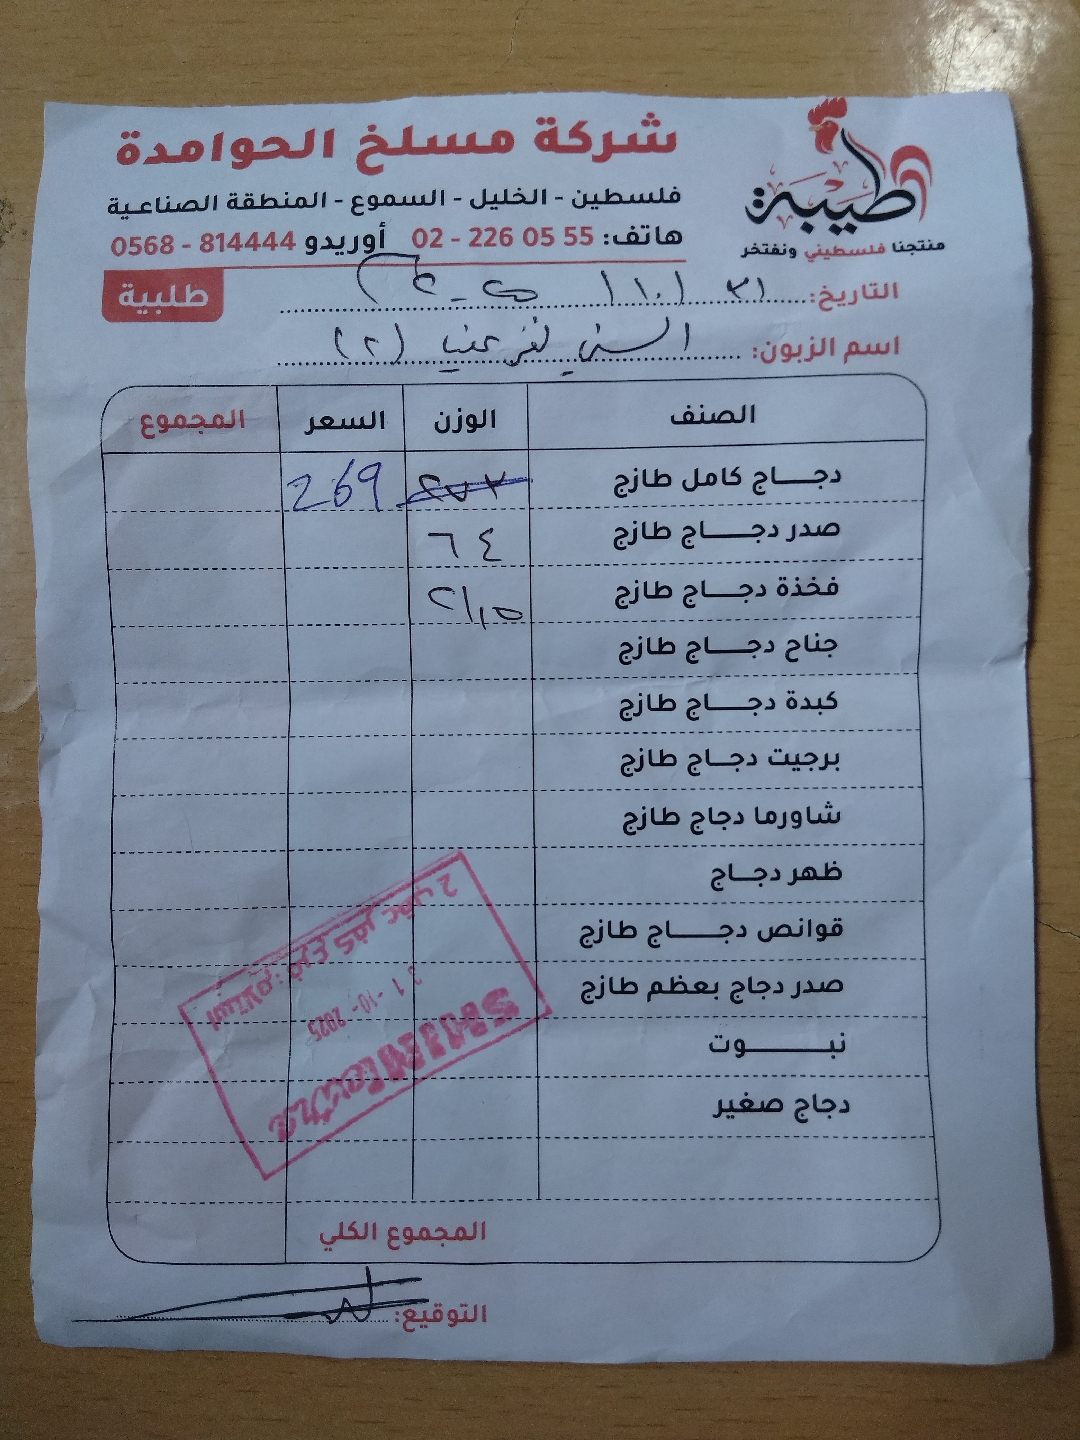 شركة مسلخ الحوامدة
فلسطين - الخليل - السموع - المنطقة الصناعية
هاتف: 02 - 226 05 55 أوريدو 0568 - 814444
طيبة
منتجنا فلسطيني ونفتخر
طلبية
التاريخ: ٣١ / ١٠ /
اسم الزبون: (٢)
الصنف الوزن السعر المجموع
دجاج كامل طازج ٢٧٣ 269
صدر دجاج طازج ٦٤
فخذة دجاج طازج ٢١,١٥
جناح دجاج طازج
كبدة دجاج طازج
برجيت دجاج طازج
شاورما دجاج طازج
ظهر دجاج
قوانص دجاج طازج
صدر دجاج بعظم طازج
نبوت
دجاج صغير
المجموع الكلي
التوقيع:
31 -10- 2025
استلام: فرع كفر عقب 2